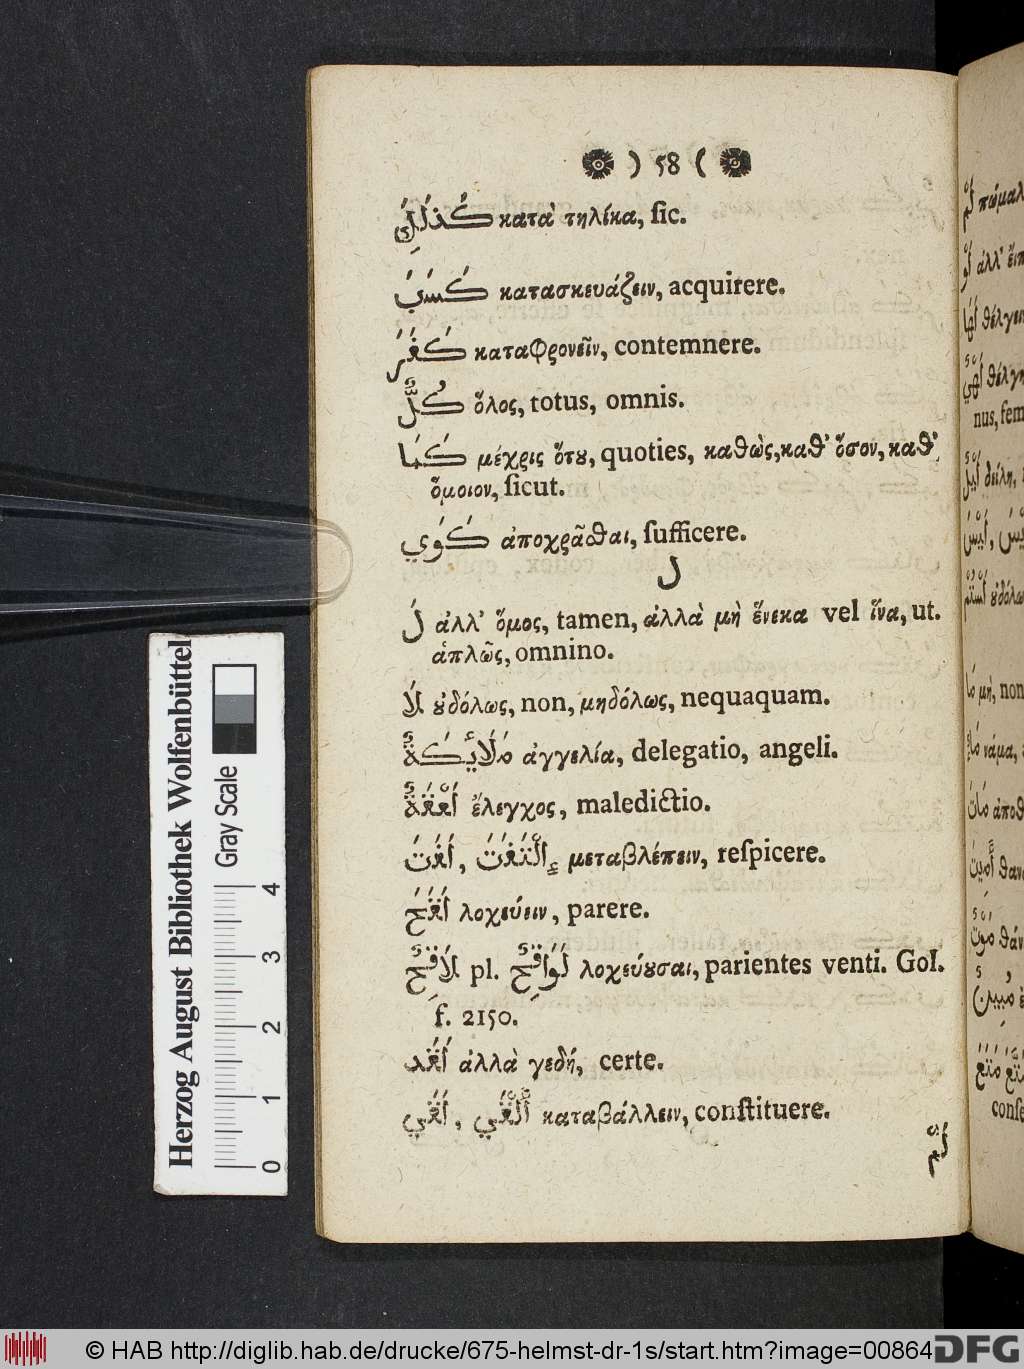 ) 58 (
كَذٰلِكَ κατα' τηλίκα, ſic.
كَسَبَ κατασκευάζειν, acquirere.
كَفَرَ καταφρονεῖν, contemnere.
كُلٌّ ὅλος, totus, omnis.
كَمَا μέχρις ὅτȣ, quoties, καθὼς, καθ' ὅσον, καθ'
ὅμοιον, ſicut.
كَوَي ἀποχρᾶσθαι, ſufficere.
ل
لَ ἀλλ' ὅμος, tamen, ἀλλὰ μὴ ἕνεκα vel ἵνα, ut.
ἁπλῶς, omnino.
لَا ȣδόλως, non, μηδόλως, nequaquam.
مَلَائِكَةٌ ἀγγελία, delegatio, angeli.
ἔλεγχος, maledictio.
لَفَتَ, إِلْتَفَتَ μεταβλέπειν, reſpicere.
لَقَحَ λοχεύειν, parere.
لَاقِحٌ pl. لَوَاقِحٌ λοχεύȣσαι, parientes venti. Gol.
f. 2150.
لَقَد ἀλλὰ γεδή, certe.
لَقَي, أَلْقَي καταβάλλειν, conſtituere.
لَمْ
πώμαλ
لَوْ ἀλλ' εἴπ
لَهَا θέλγειν
θέλγη
nus, fem
لَيْلٌ δείλη,
لَيْسَ
ȣδόλω
مَا μὴ, non
νάμα,
مَاتَ ἀποθ
θαν
مَوْتٌ θάν
مُبِينٌ
conſe
Herzog August Bibliothek Wolfenbüttel
Gray Scale
0 1 2 3 4
© HAB http://diglib.hab.de/drucke/675-helmst-dr-1s/start.htm?image=00864
DFG